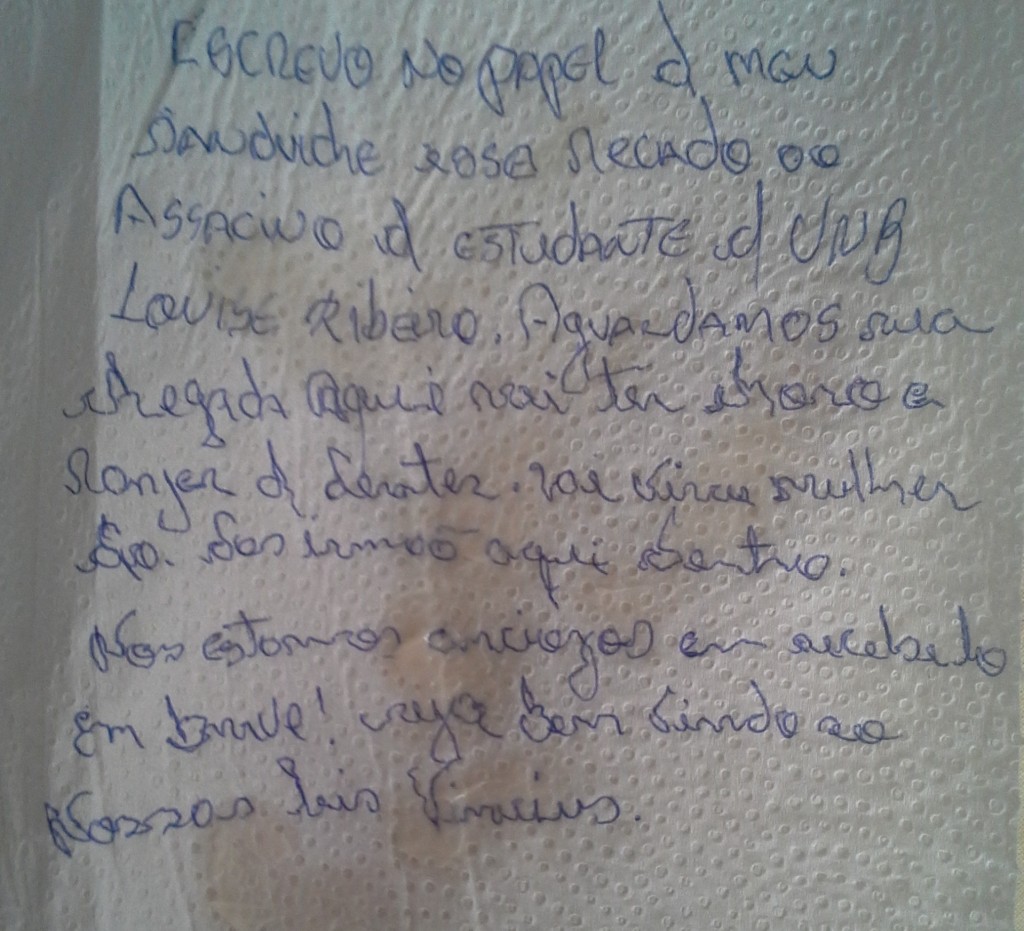 ESCREVO NO PAPEL d meu
Sanduiche Recado ao
Assacino d ESTUDANTE d UNB
Louise Ribeiro. Aguardamos sua
chegada aqui vai ter choro e
Ranjer d denter. vai virar mulher
aqui dentro.
Nos estamos anciozos em recebelo
em breve! seja bem vindo ao
Nosso